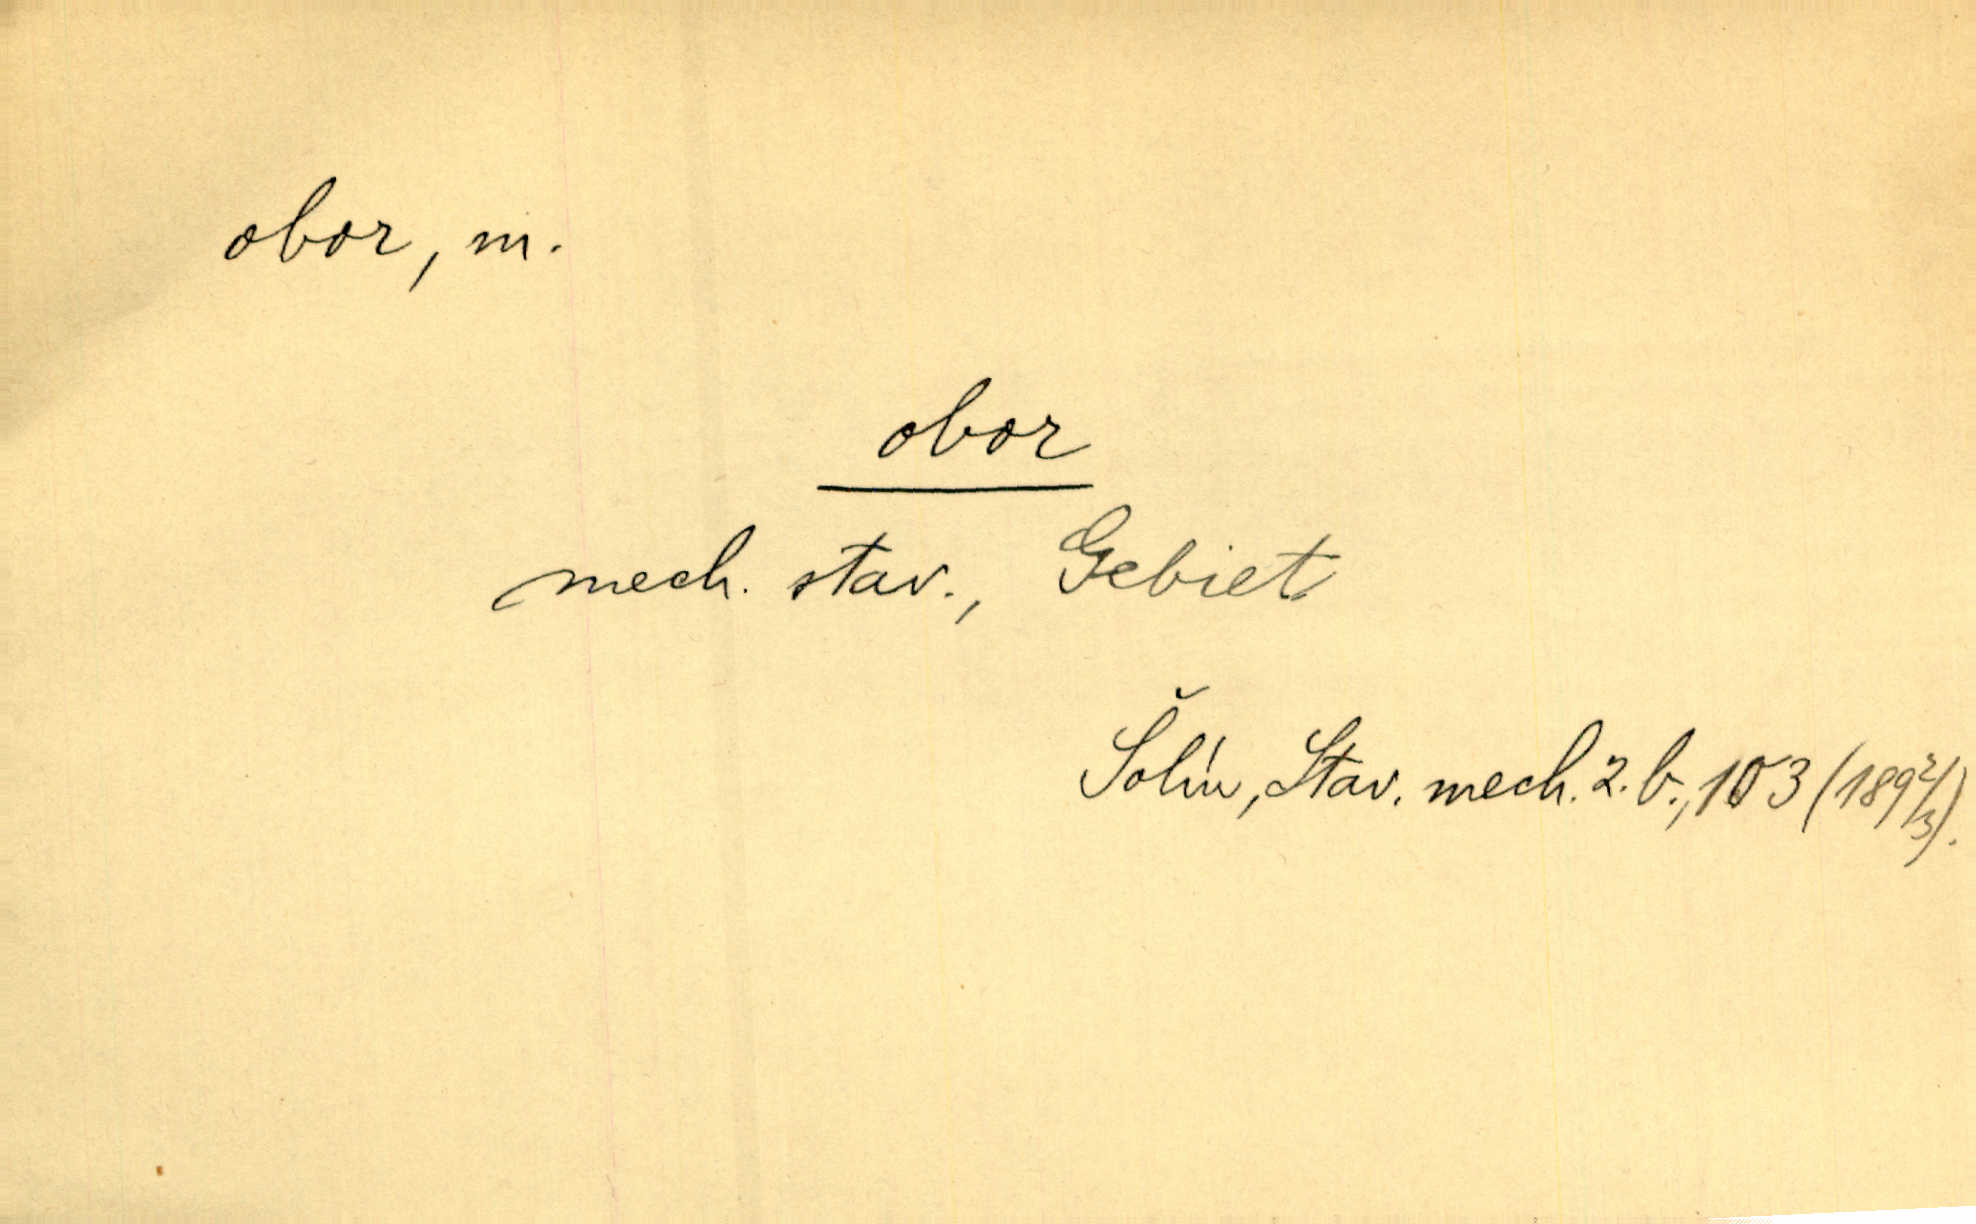 obor, m.
obor
mech. stav., Gebiet
Šolín, Stav. mech. 2. b., 103 (1892/3).